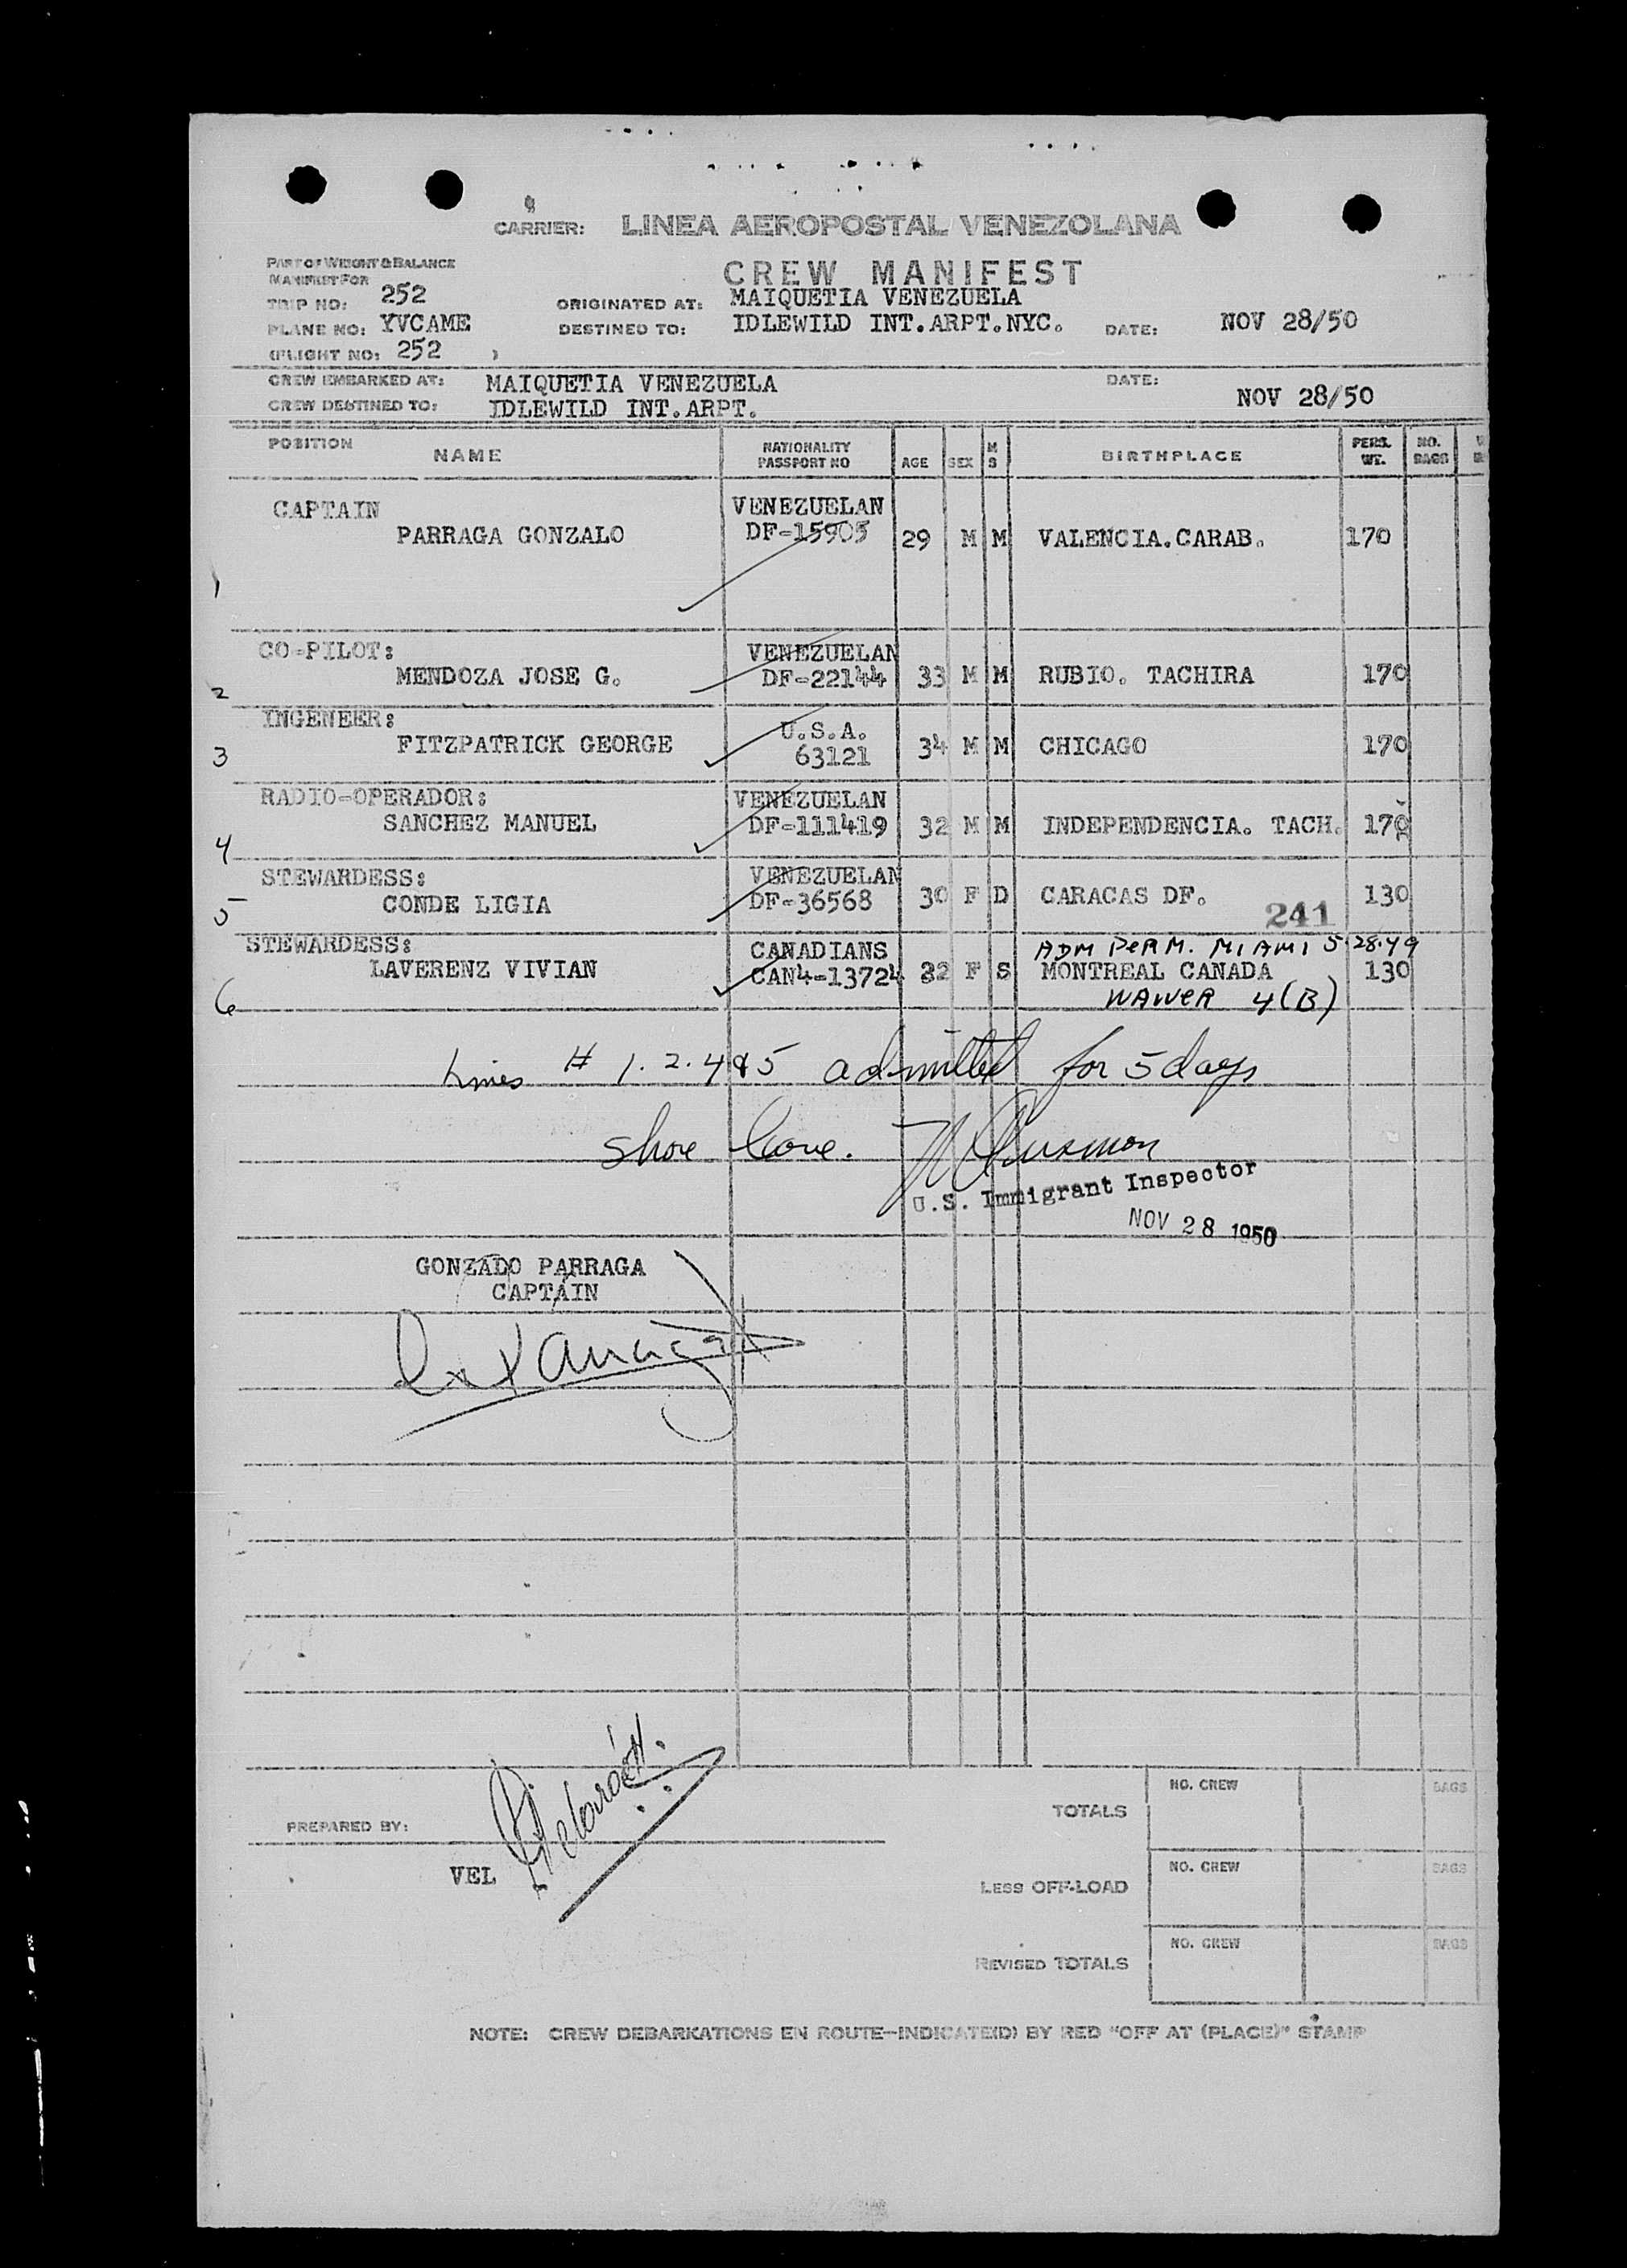 CARRIER: LINEA AEROPOSTAL VENEZOLANA
PART OF WEIGHT & BALANCE
MANIFEST FOR
CREW MANIFEST
TRIP NO: 252 ORIGINATED AT: MAIQUETIA VENEZUELA
PLANE NO: YVCAME DESTINED TO: IDLEWILD INT.ARPT.NYC. DATE: NOV 28/50
(FLIGHT NO: 252 )
CREW EMBARKED AT: MAIQUETIA VENEZUELA DATE: NOV 28/50
CREW DESTINED TO: IDLEWILD INT.ARPT.
POSITION NAME NATIONALITY PASSPORT NO AGE SEX M S BIRTHPLACE PERS. WT. NO. BAGS
CAPTAIN VENEZUELAN
1 PARRAGA GONZALO DF-15905 29 M M VALENCIA.CARAB. 170
CO-PILOT: VENEZUELAN
2 MENDOZA JOSE G. DF-22144 33 M M RUBIO. TACHIRA 170
INGENEER: U.S.A.
3 FITZPATRICK GEORGE 63121 34 M M CHICAGO 170
RADIO-OPERADOR: VENEZUELAN
4 SANCHEZ MANUEL DF-111419 32 M M INDEPENDENCIA. TACH. 170
STEWARDESS: VENEZUELAN
5 CONDE LIGIA DF-36568 30 F D CARACAS DF. 130
241
STEWARDESS: CANADIANS ADM PERM. MIAMI 5.28.49
6 LAVERENZ VIVIAN CAN4-13724 32 F S MONTREAL CANADA 130
WAIVER 4(B)
Lines # 1. 2. 4 & 5 admitted for 5 days
shore leave.
U.S. Immigrant Inspector
NOV 28 1950
GONZADO PARRAGA
CAPTAIN
PREPARED BY:
VEL
TOTALS NO. CREW BAGS
LESS OFF-LOAD NO. CREW BAGS
REVISED TOTALS NO. CREW BAGS
NOTE: CREW DEBARKATIONS EN ROUTE—INDICATE(D) BY RED "OFF AT (PLACE)" STAMP